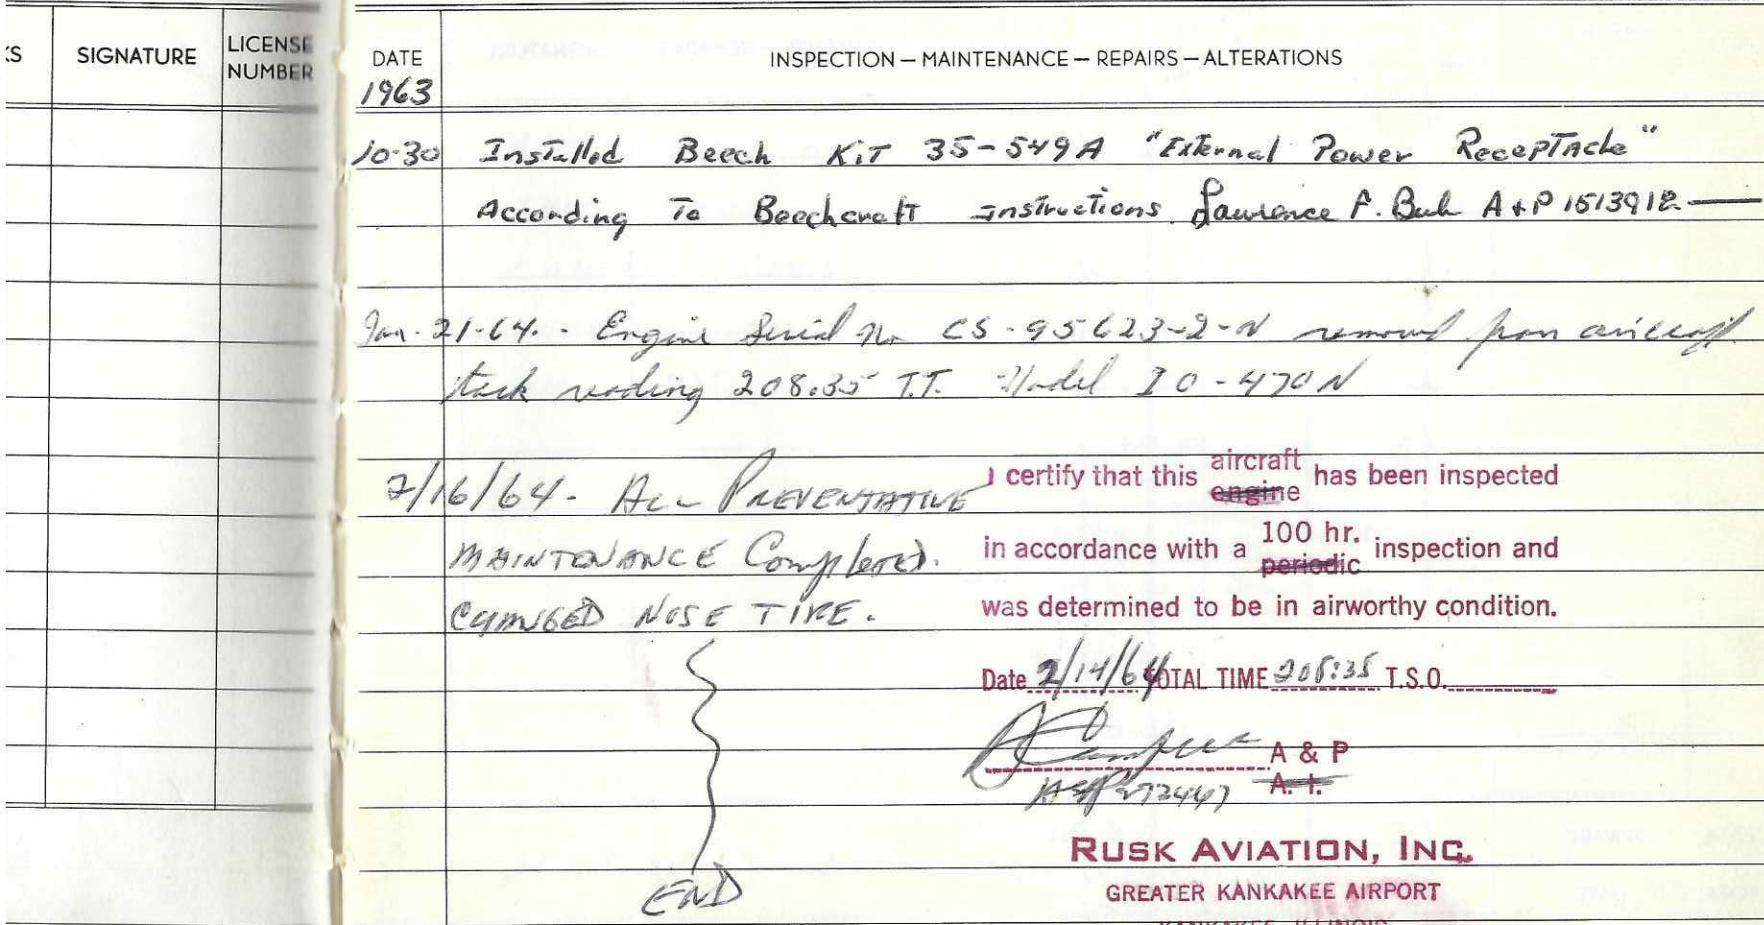 KS SIGNATURE LICENSE NUMBER
DATE INSPECTION — MAINTENANCE — REPAIRS — ALTERATIONS
1963
10-30 Installed Beech KiT 35-549A "External Power Receptacle"
According To Beechcraft instructions. Lawrence F. A+P 1513912
Jan-21-64. - Engine Serial No CS-95623-2-N removed from aircraft
tach reading 208.35 T.T. Model IO-470N
2/16/64 - ALL PREVENTATIVE
MAINTENANCE Completed.
CHANGED NOSE TIRE.
END
I certify that this aircraft engine has been inspected
in accordance with a 100 hr. periodic inspection and
was determined to be in airworthy condition.
Date 2/14/64 TOTAL TIME 208:35 T.S.O.
A & P
A&P 273447 A. I.
RUSK AVIATION, INC.
GREATER KANKAKEE AIRPORT
KANKAKEE, ILLINOIS